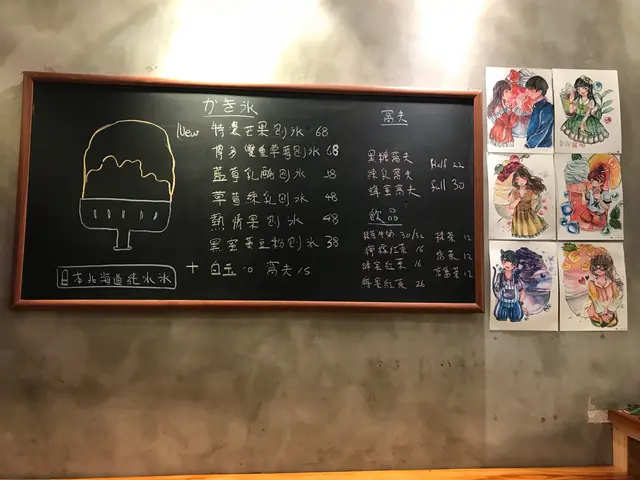 かき氷
New 特濃芒果刨冰 68
博多雙重草莓刨冰 68
藍莓乳酪刨冰 48
草莓煉乳刨冰 48
熱情果刨冰 48
黑蜜黃豆粉刨冰 38
+ 白玉 10 窩夫 15
日本北海道純水氷
窩夫
黑糖窩夫
煉乳窩夫
蜂蜜窩夫
Half 22
full 30
飲品
抹茶牛奶 30/32
檸檬紅茶 16
紅茶 16
蜂蜜紅茶 26
抹茶 12
焙茶 12
12